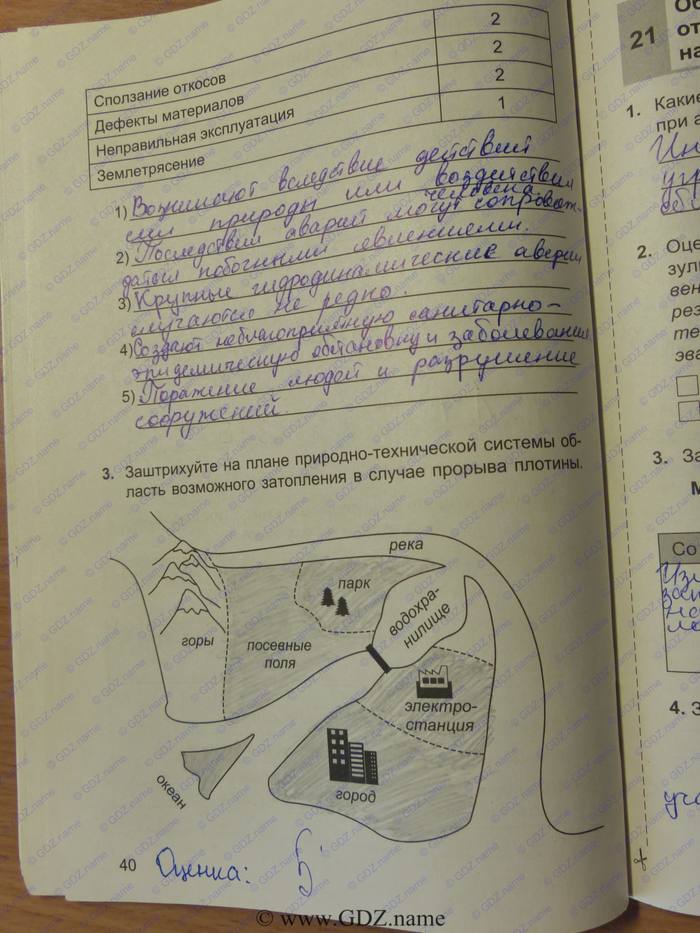 Сползание откосов 2
Дефекты материалов 2
Неправильная эксплуатация 2
Землетрясение 1
1) Возникают вследствие действий
сил природы или воздействия
человека
2) Последствия аварий могут сопровож-
даться побочными явлениями.
3) Крупные гидродинамические аварии
случаются не редко.
4) Создают неблагоприятную санитарно-
эпидемическую обстановку и заболевания
5) Поражение людей и разрушение
сооружений.
3. Заштрихуйте на плане природно-технической системы об-
ласть возможного затопления в случае прорыва плотины.
река
парк
водохра-
нилище
горы
посевные
поля
электро-
станция
город
океан
40 Оценка: 5
21
Об
от
на
1. Какие
при а
2. Оце
зули
вен
рез
те
эва
3. За
М
Со
4. З
© www.GDZ.name